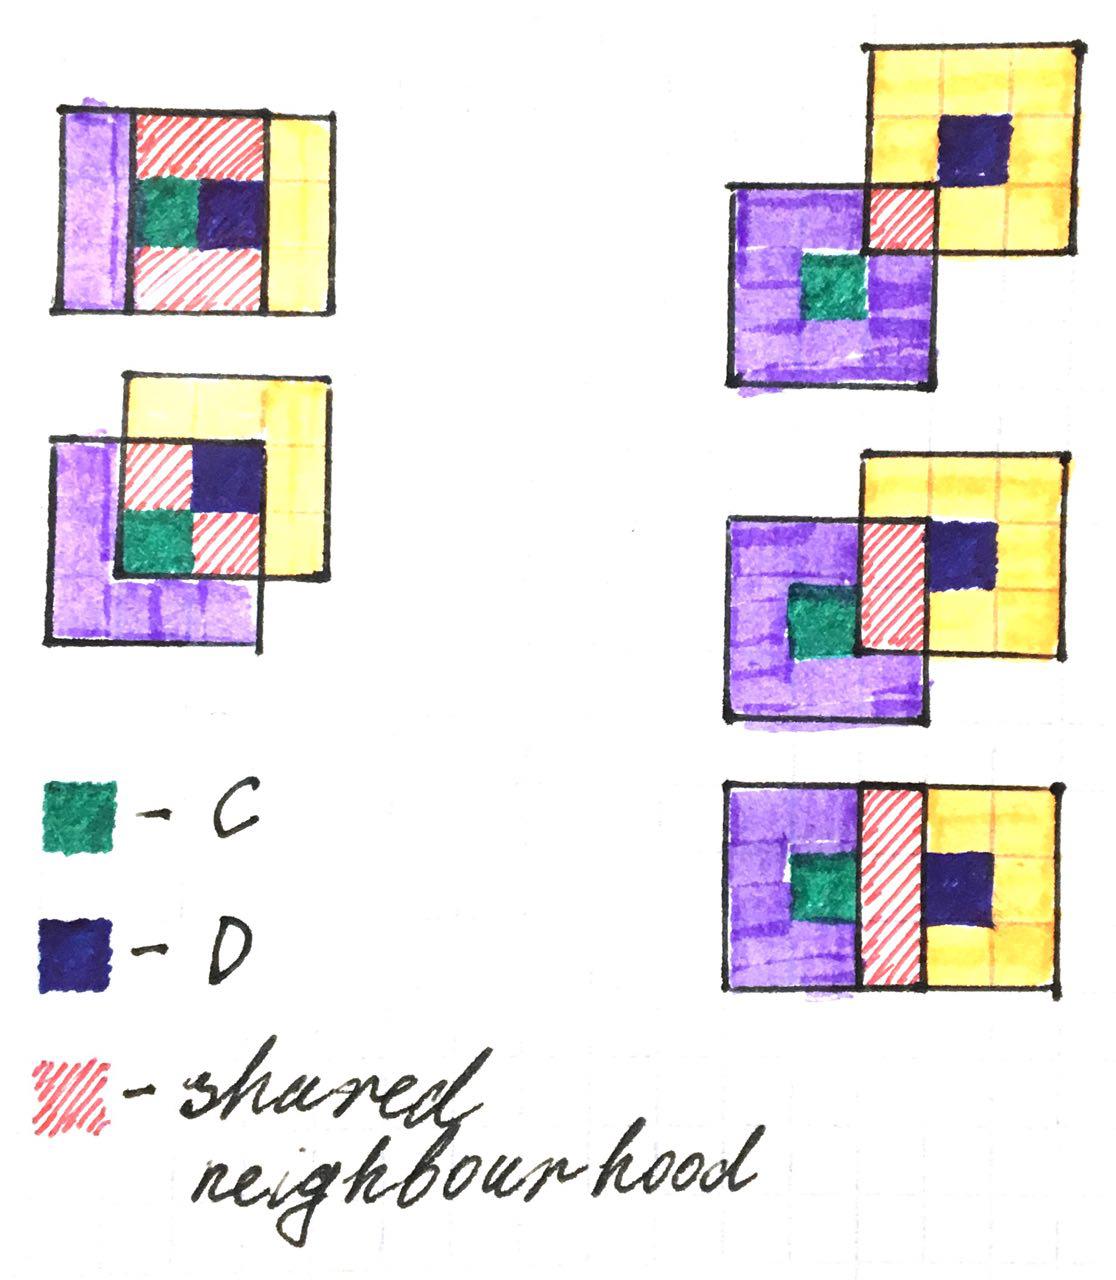 - C
- D
- shared
neighbourhood